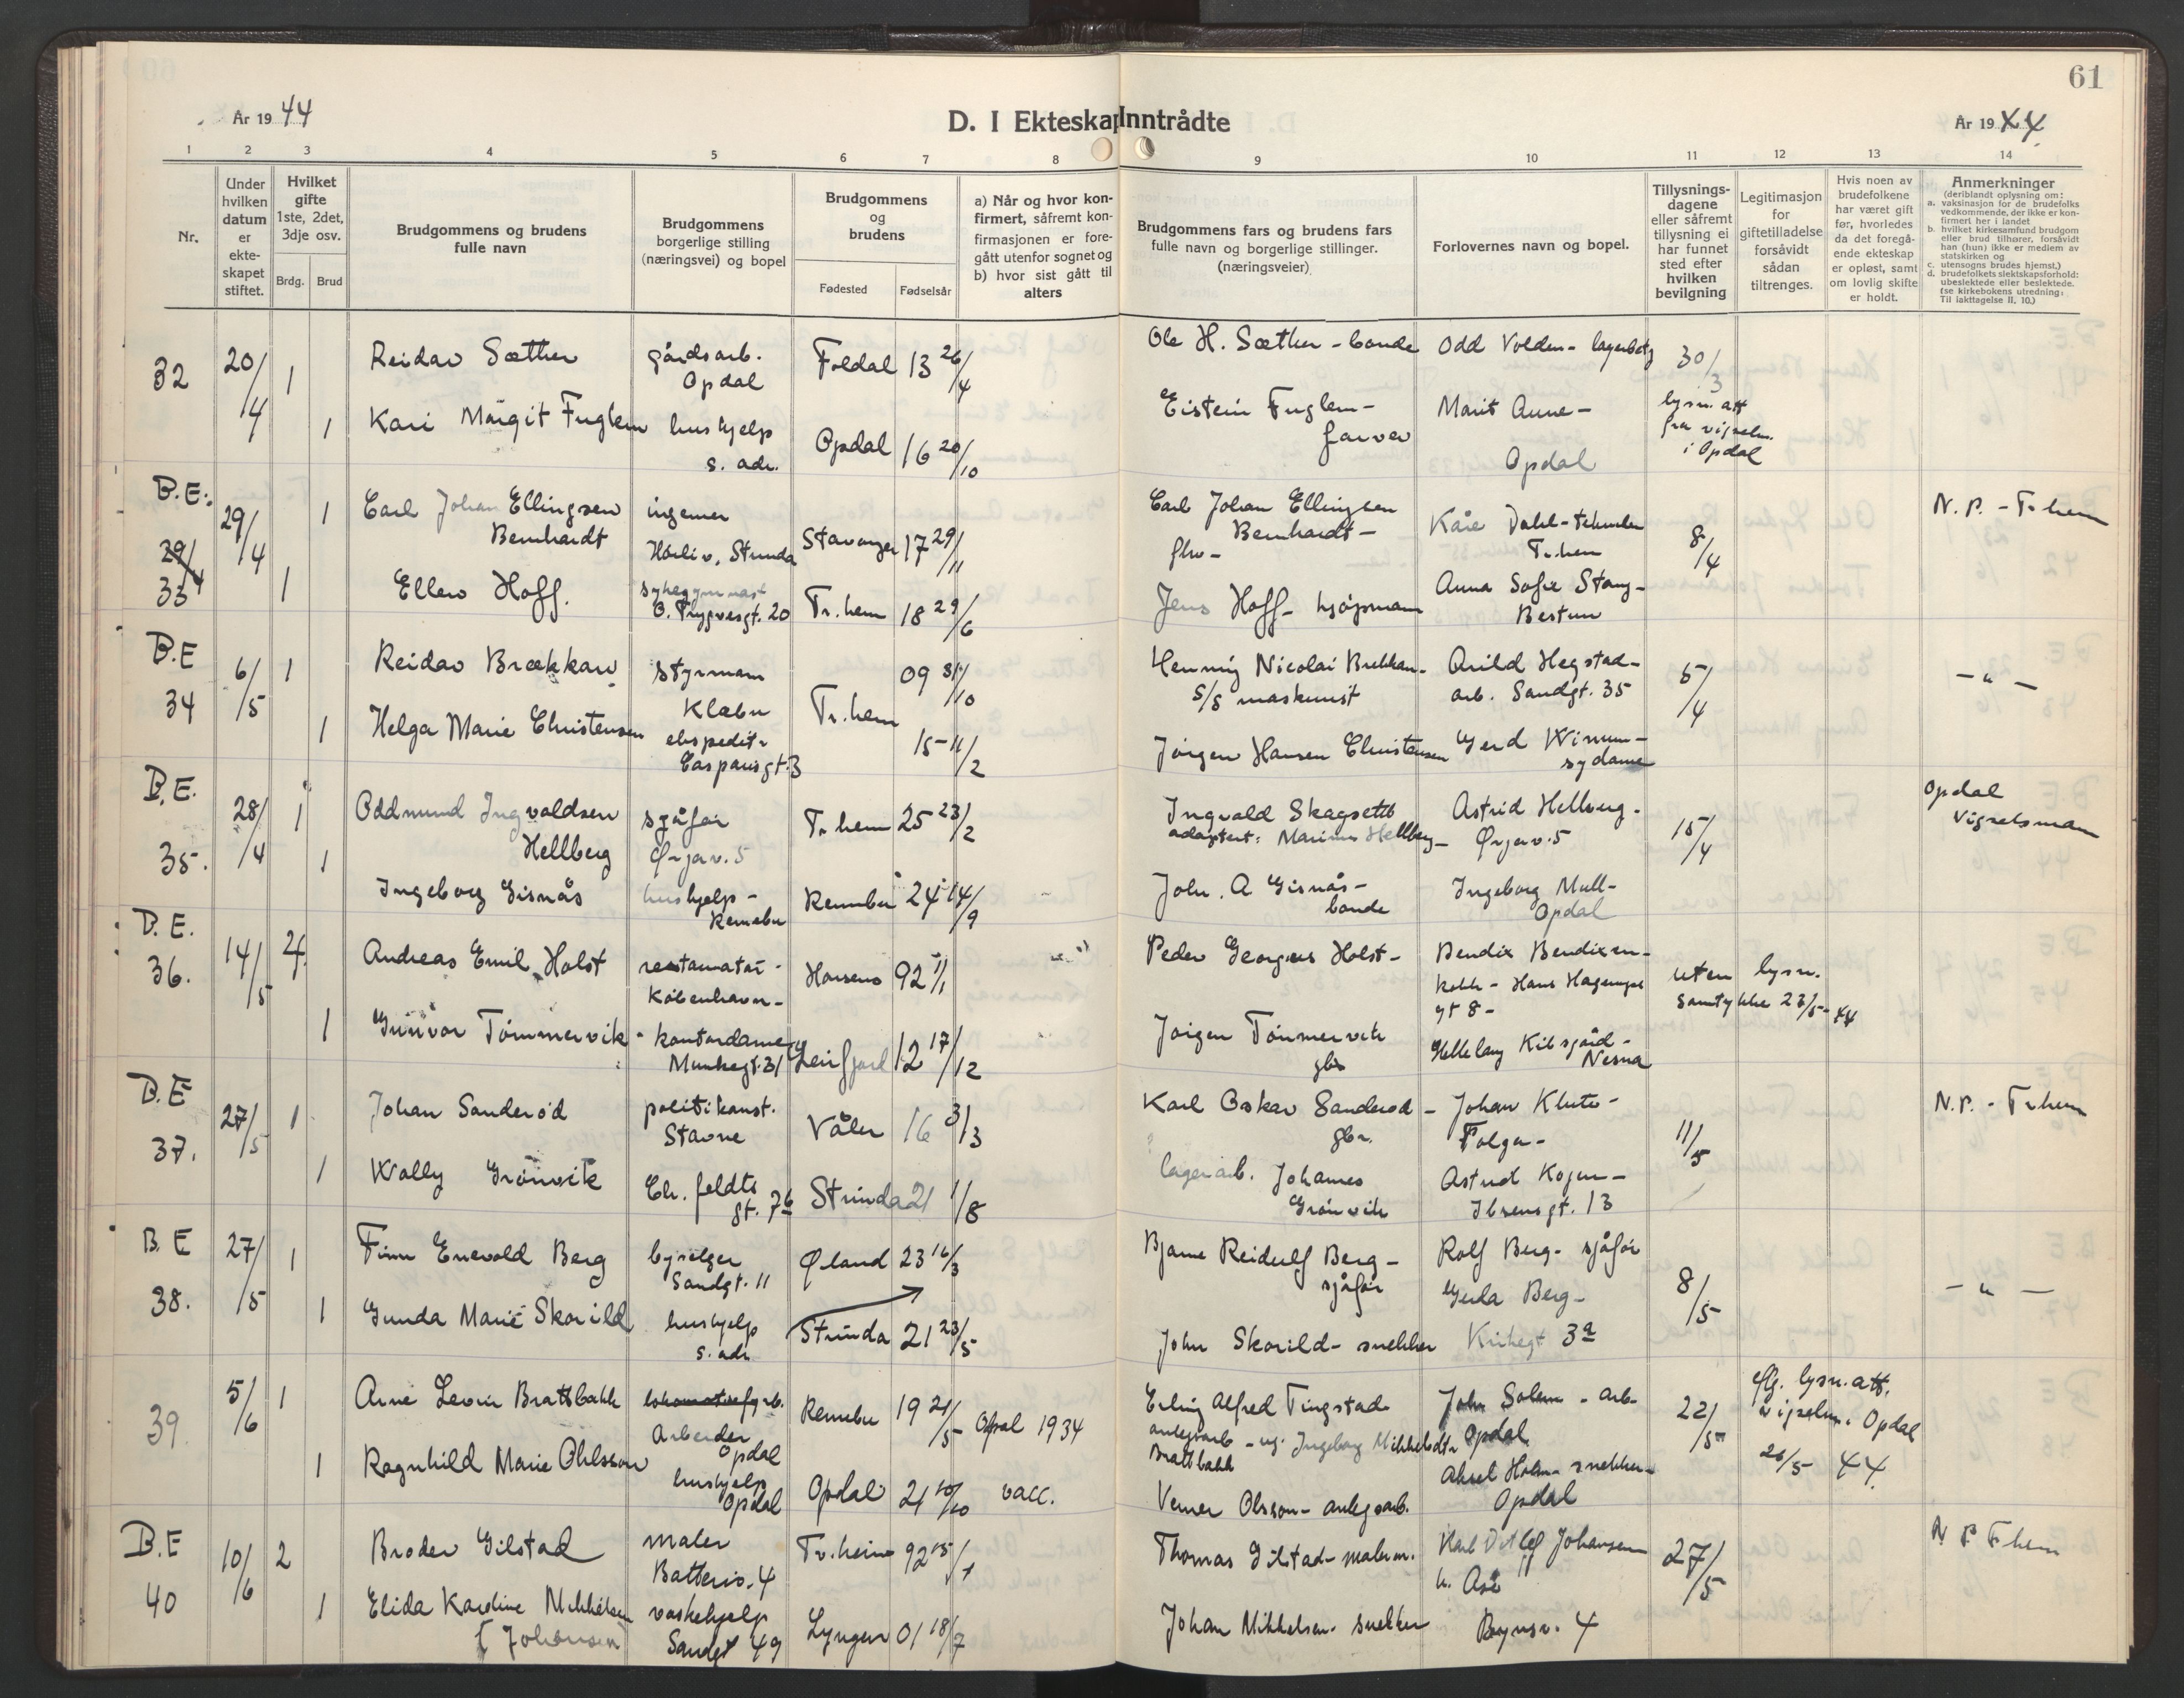 61
År 1944
D. I Ekteskap Inntrådte
År 1944
1 2 3 4 5 6 7 8 9 10 11 12 13 14
Nr.
Under hvilken datum er ekte-skapet stiftet.
Hvilket gifte 1ste, 2det, 3dje osv.
Brdg. Brud
Brudgommens og brudens fulle navn
Brudgommens borgerlige stilling (næringsvei) og bopel
Brudgommens og brudens
Fødested Fødselsår
a) Når og hvor kon-firmert, såfremt kon-firmasjonen er fore-gått utenfor sognet og b) hvor sist gått til alters
Brudgommens fars og brudens fars fulle navn og borgerlige stillinger. (næringsveier)
Forlovernes navn og bopel.
Tillysnings-dagene eller såfremt tillysning ei har funnet sted efter hvilken bevilgning
Legitimasjon for giftetilladelse forsåvidt sådan tiltrenges.
Hvis noen av brudefolkene har været gift før, hvorledes da det foregå-ende ekteskap er opløst, samt om lovlig skifte er holdt.
Anmerkninger
(deriblandt oplysning om:
a. vaksinasjon for de brudefolks vedkommende, der ikke er kon-firmert her i landet
b. hvilket kirkesamfund brudgom eller brud tilhører, forsåvidt han (hun) ikke er medlem av statskirken og
c. utensogns brudes hjemst.)
d. brudefolkets slektskapsforhold: ubeslektede eller beslektede.
(se kirkebokens utredning: Til iakttagelse II, 10.)
32 20/4 1 Reidar Sæther gårdsarb. Opdal Foldal 13 26/4 Ole H. Sæther - bonde Odd Volden - 30/3
1 Kari Margit Fuglem hushjelp s. adr. Opdal 16 20/10 Eistein Fuglem - farver Marit Aune - Opdal lysn. att fra vigselm. i Opdal
B.E. 33 29/4 1 Carl Johan Ellingsen Bernhardt ingeniør Stavanger 17 29/11 Carl Johan Ellingsen Bernhardt - Kåre Dahl - tekniker Tr.hem 8/4 N.P. - Tr.hem
1 Ellen Hoff. sykegymnast O. Trygvesgt. 20 Tr.hem 18 29/6 Jens Hoff - kjøpmann Anna Sofie Stang - Bestum
B.E 34 6/5 1 Reidar Brækkan styrmann Klæbu Tr.hem 09 31/10 Henning Nicolai Brekkan - S/S maskinist Arild Hegstad - arb. Sandgt. 35 5/4 - " -
1 Helga Marie Christensen ekspeditr Casparisgt. 3 15 11/2 Jörgen Hansen Christensen Gerd Winum - sydame
B.E. 35. 28/4 1 Oddmund Ingvaldsen Hellberg sjåfør Ørjav. 5 Tr.hem 25 23/2 Ingvald Skagseth adoptert: Marinus Hellberg - Astrid Hellberg - Ørjav. 5 15/4 Opdal Vigselsmann
1 Ingeborg Gisnås hushjelp - Rennebu Rennebu 24 14/9 John. A Gisnås - bonde Ingeborg Mell - Opdal
B.E. 36. 14/5 2 Andreas Emil Holst restauratør - København - Horsens 92 1/1 Peder Georgius Holst - Bendix Bendixen - kokk - Hans Hagerups gt 8 - uten lysn. samtykke 23/5 - 44
1 Gunvor Tømmervik - kontordame Munkegt. 31 Leirfjord 12 17/12 Jørgen Tømmervik gbr Nesna
B.E 37. 27/5 1 Johan Sanderød politikonst. Stavne Våler 16 3/3 Karl Oskar Sanderød - gbr. Johan Klute - Tolga - 11/5 N.P. - Tr.hem
1 Wally Grønvik Ch. feldts gt. 7b Strinda 21 1/8 lagerarb. Johannes Grønvik Astrid Kojen - Ibsensgt. 13
B.E 38. 27/5 1 Finn Enevold Berg byselger Sandgt. 11 Ørland 23 16/3 Bjarne Reidulf Berg - sjåfør Rolf Berg - sjåfør 8/5 - " -
1 Gunda Marie Skarild hushjelp s. adr Strinda 21 23/5 John Skarild - snekker Gerda Berg - Kirkegt 3a
39 5/6 1 Arne Levin Brattbakk Arbeider Opdal Rennebu 19 21/5 Opdal 1934 Erling Alfred Tingstad anlegsarb - ug. Ingeborg Mikkelsdtr Brattbakk John Solem - arb - Opdal 22/5 flg. lysn. att. vigselm. i Opdal 26/5 44.
1 Ragnhild Marie Ohlsson hushjelp Opdal Opdal 21 10/10 vacc. Verner Olsson - anlegsarb. Aksel Holm - snekker - Opdal
B.E 40 10/6 2 Broder Gilstad maler Batteriv. 4 Tr.heim 92 15/1 Thomas Gilstad - malerm. Karl Ditlef Johansen 27/5 N P Trhem
1 Elida Kardine Mikkelsen f Johansen vaskehjelp Sandgt 49 Lyngen 01 18/7 Johan Mikkelsen - snekker Bynesv. 4